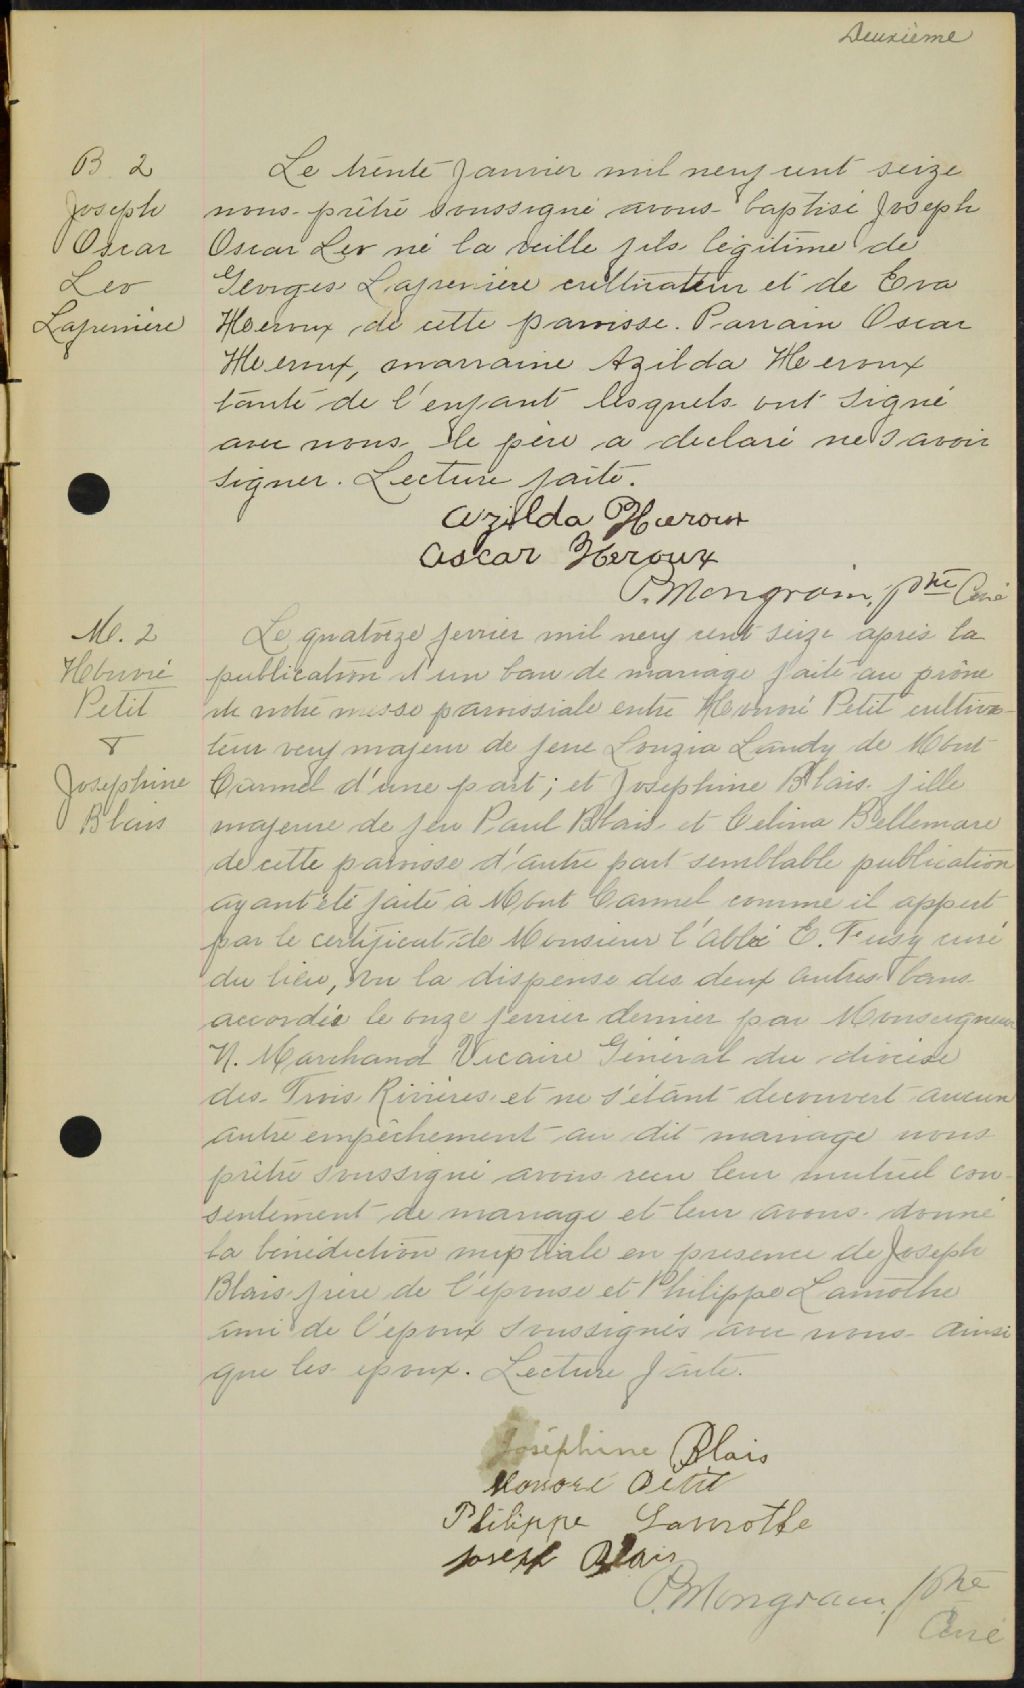 Deuxième
B 2
Joseph
Oscar
Leo
Lafrenière
Le trente Janvier mil neuf cent seize
nous prêtre soussigné avons baptisé Joseph
Oscar Leo né la veille fils légitime de
Georges Lafrenière cultivateur et de Eva
Heroux de cette paroisse. Parrain Oscar
Heroux, marraine Azilda Heroux
tante de l'enfant lesquels ont signé
avec nous le père a declaré ne savoir
signer. Lecture faite.
Azilda Heroux
Oscar Heroux
P. Mongrain, Ptre Curé
M. 2
Honoré
Petit
&
Josephine
Blais
Le quatorze fevrier mil neuf cent seize après la
publication d'un ban de mariage faite au prône
de notre messe paroissiale entre Honoré Petit cultiva-
teur veuf majeur de feue Louzia Landy de Mont
Carmel d'une part; et Josephine Blais fille
majeure de feu Paul Blais et Celina Bellemare
de cette paroisse d'autre part semblable publication
ayant été faite à Mont Carmel comme il appert
par le certificat de Monsieur l'Abbé E. Fusy curé
du lieu, vu la dispense des deux autres bans
accordée le onze fevrier dernier par Monseigneur
N. Marchand Vicaire Général du diocèse
des Trois Rivières et ne s'étant decouvert aucun
autre empêchement au dit mariage nous
prêtre soussigné avons recu leur mutuel con-
sentement de mariage et leur avons donné
la bénédiction nuptiale en presence de Joseph
Blais frère de l'épouse et Philippe Lamothe
ami de l'epoux soussignés avec nous ainsi
que les epoux. Lecture faite.
Joséphine Blais
Honoré Petit
Philippe Lamothe
Joseph Blais
P. Mongrain, Ptre
Curé